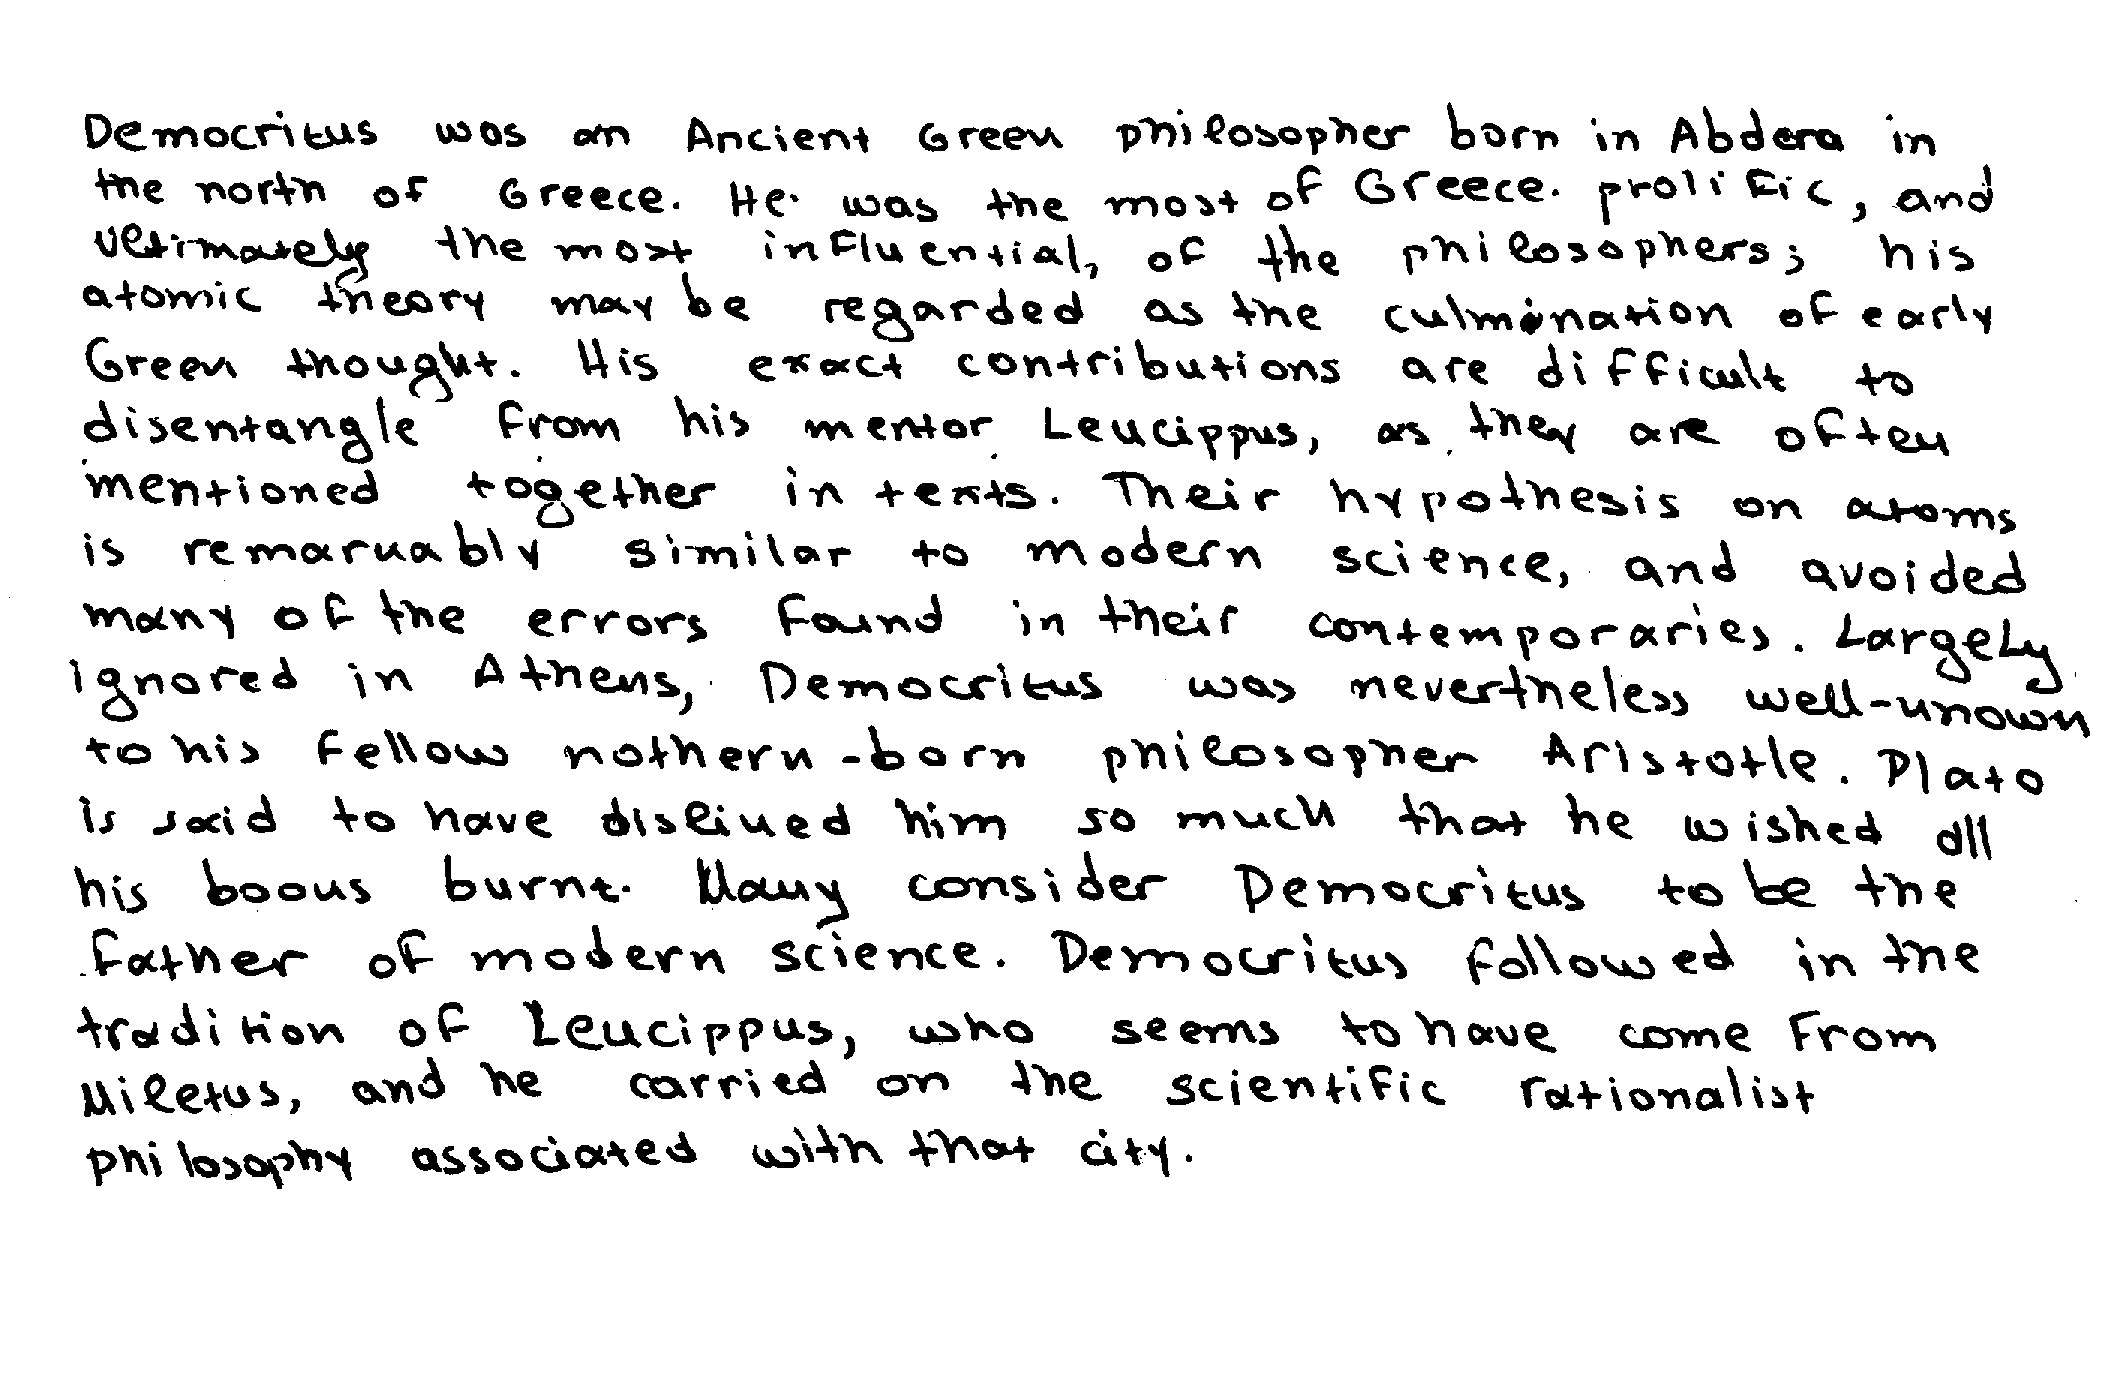 Democritus was an Ancient Greek philosopher born in Abdera in
the north of Greece. He was the most of Greece. prolific, and
ultimately the most influential, of the philosophers; his
atomic theory may be regarded as the culmination of early
Greek thought. His exact contributions are difficult to
disentangle from his mentor Leucippus, as they are often
mentioned together in texts. Their hypothesis on atoms
is remarkably similar to modern science, and avoided
many of the errors found in their contemporaries. Largely
ignored in Athens, Democritus was nevertheless well-known
to his fellow nothern-born philosopher Aristotle. Plato
is said to have disliked him so much that he wished all
his books burnt. Many consider Democritus to be the
father of modern science. Democritus followed in the
tradition of Leucippus, who seems to have come from
Miletus, and he carried on the scientific rationalist
philosophy associated with that city.